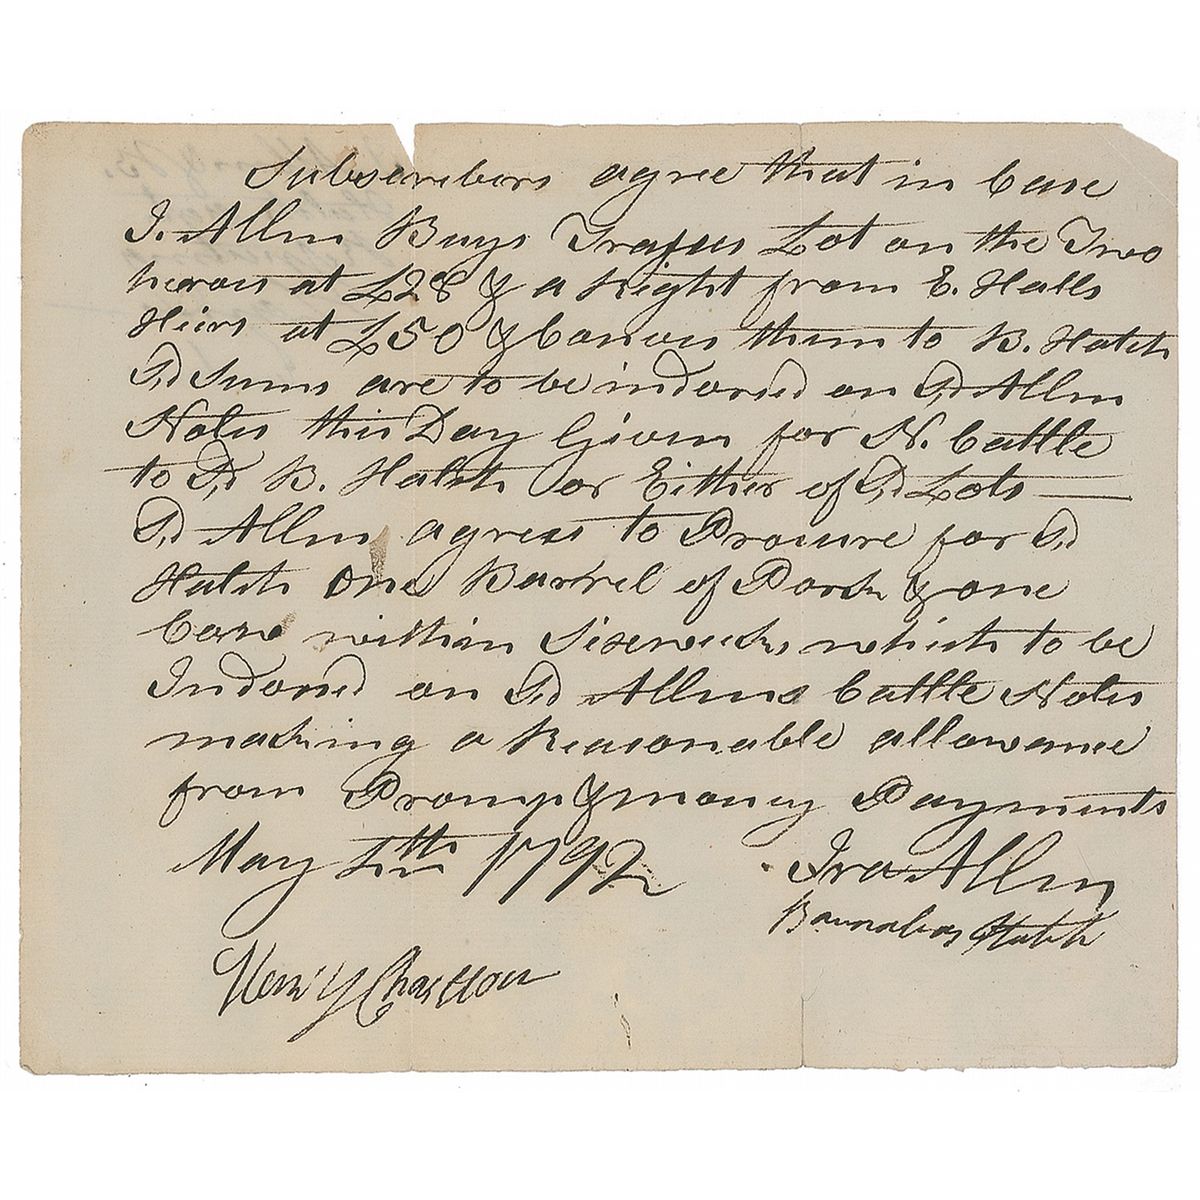 Subscribers agree that in Case
I. Allen Buys Lot on the Two
heroes at £28 & a Right from E. Halls
Heirs at £50 & Conveys them to B. Hatch
Sd Sums are to be indorsed on Sd Allen
Notes this Day Given for N. Cattle
to Sd B. Hatch or Either of Sd Lots —
Sd Allen agrees to Procure for Sd
Hatch One Barrel of Pork & one
within Six weeks, which to be
Indorsed on Sd Allens Cattle Notes
making a Reasonable allowance
from Promp & money Payments
May 1792
Ira Allen
Barnabas Hatch
Henry